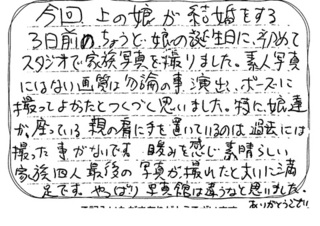 今回 上の娘が結婚をする
3日前のちょうど娘の誕生日に、初めて
スタジオで家族写真を撮りました。素人写真
にはない画質は勿論の事、演出、ポーズに
撮ってよかったとつくづく思いました。特に、娘達
が座っている親の肩に手を置いているのは過去には
撮った事がないです。暖みを感じ素晴らしい
家族四人最後の写真が撮れたと大いに満
足です。やっぱり写真館は違うなと思いました。
ありがとうござい